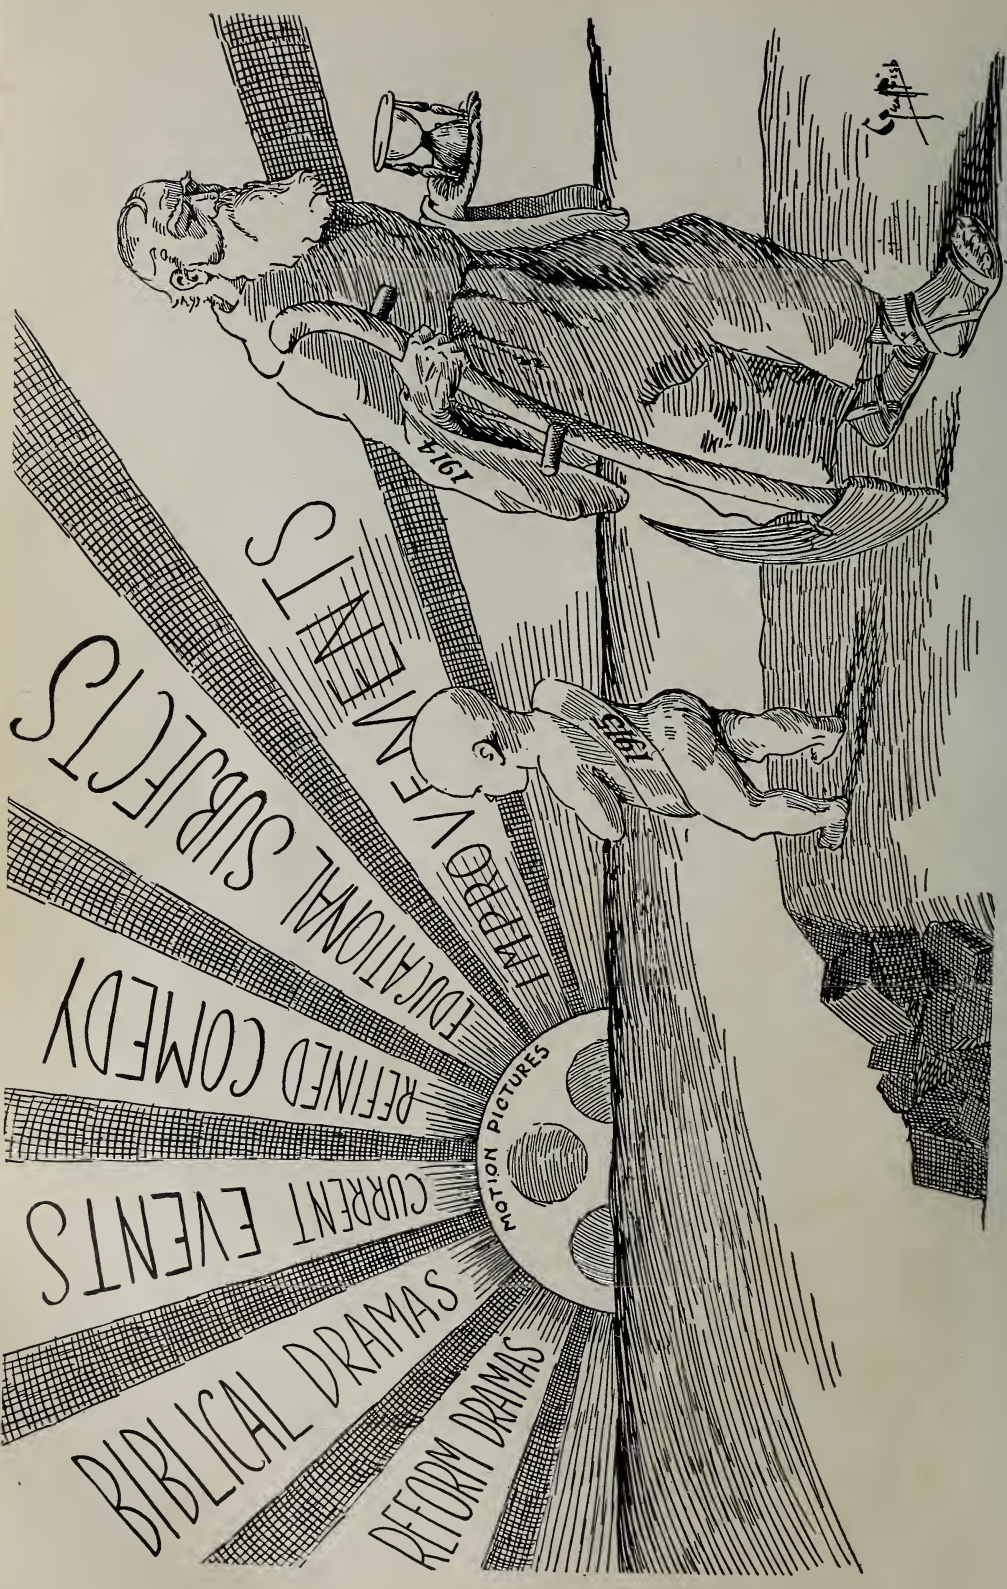 REFORM DRAMAS
BIBLICAL DRAMAS
CURRENT EVENTS
REFINED COMEDY
EDUCATIONAL SUBJECTS
IMPROVEMENTS
MOTION PICTURES
1915
1914